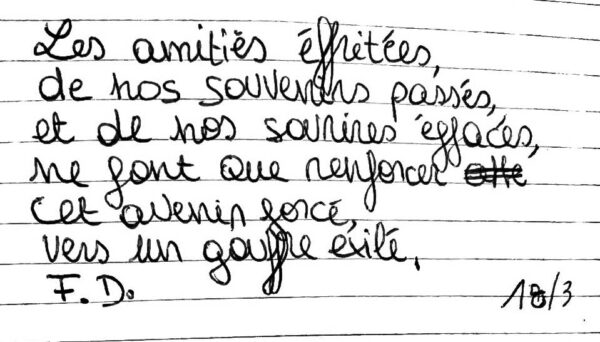 Les amitiés éffritées,
de nos souvenirs passés,
et de nos sourires éffacés,
ne font que renforcer
cet avenir forcé,
vers un gouffre éxilé.
F. D.
18/3